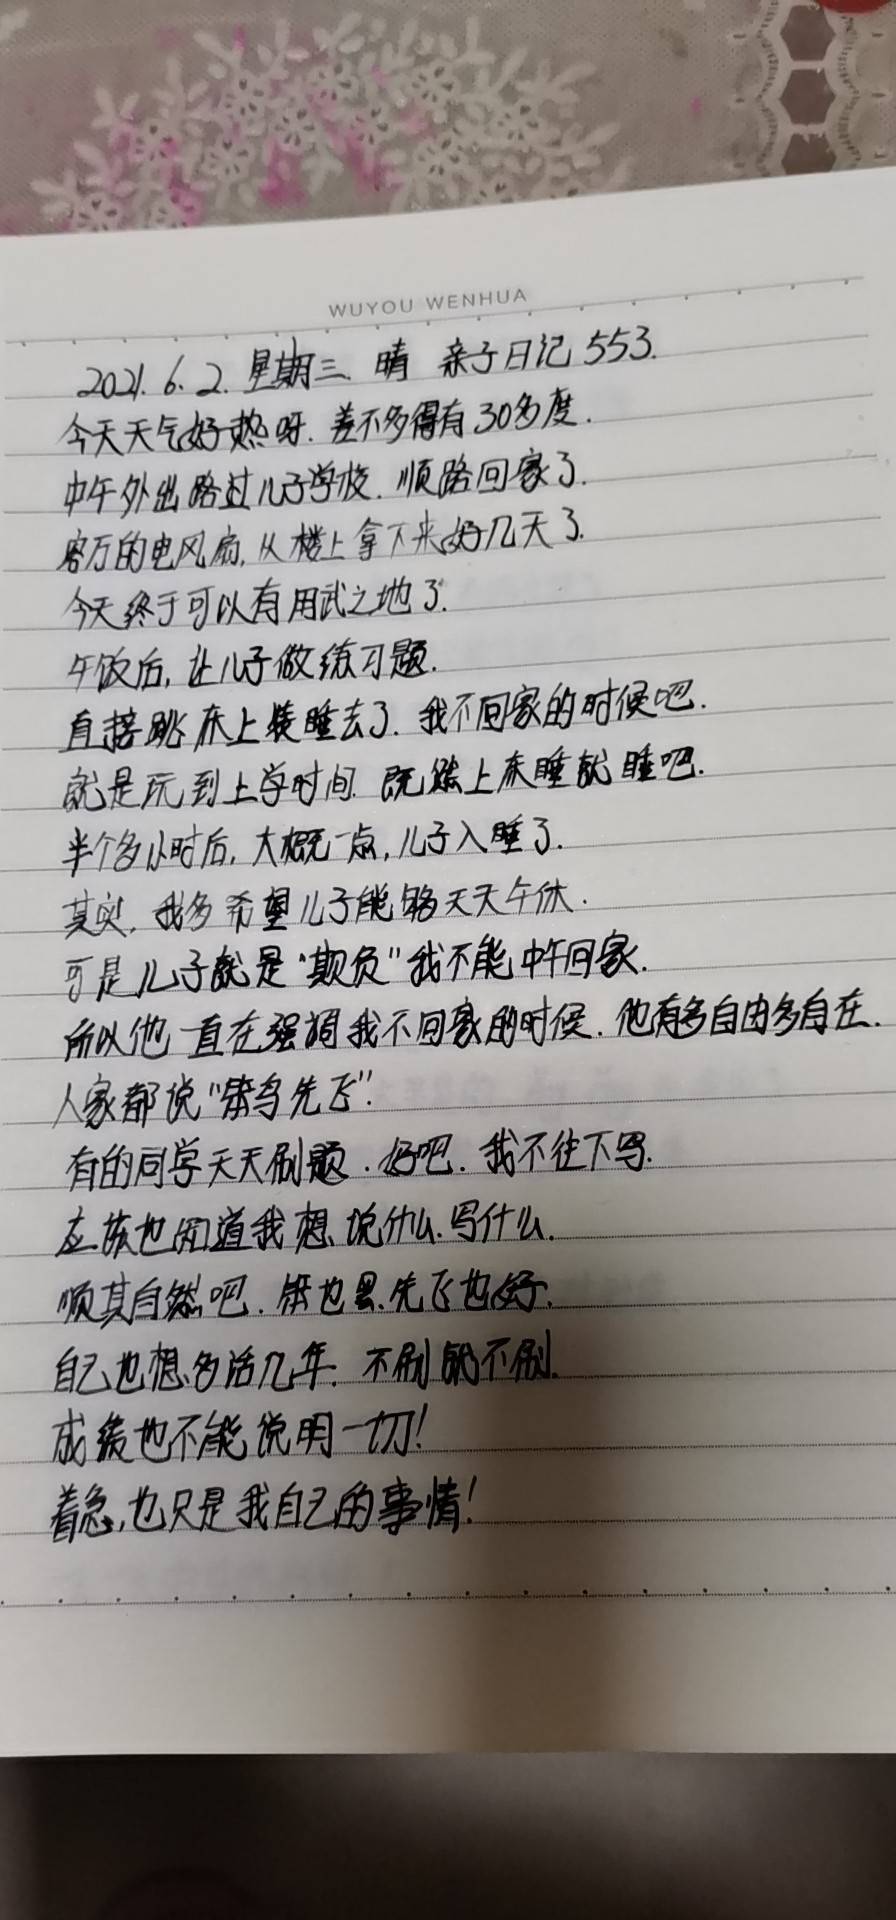 WUYOU WENHUA
2021.6.2.星期三.晴 亲子日记553.
今天天气好热呀.差不多得有30多度.
中午外出路过儿子学校.顺路回家了.
客厅的电风扇,从楼上拿下来好几天了.
今天终于可以有用武之地了.
午饭后,让儿子做练习题.
直接跳床上装睡去了.我不回家的时候吧.
就是玩到上学时间.既然上床睡就睡吧.
半个多小时后,大概一点,儿子入睡了.
其实,我多希望儿子能够天天午休.
可是儿子就是"欺负"我不能中午回家.
所以他一直在强调我不回家的时候.他有多自由多自在.
人家都说"笨鸟先飞".
有的同学天天刷题.好吧.我不往下写.
应该也知道我想说什么.写什么.
顺其自然吧.笨也罢.先飞也好.
自己也想多活几年.不刷就不刷.
成绩也不能说明一切!
着急,也只是我自己的事情!